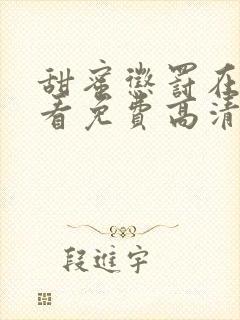 甜蜜懲罸在
看免費高清
段進宇